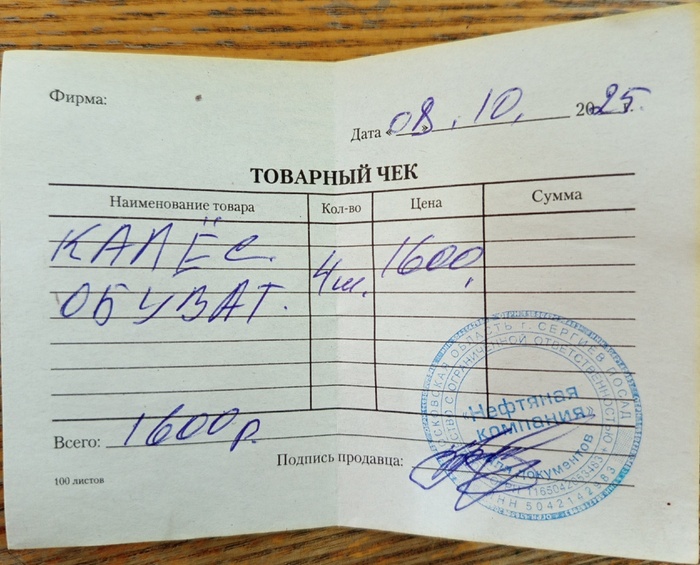 Фирма:
Дата «08» .10. 2025г.
ТОВАРНЫЙ ЧЕК
Наименование товара Кол-во Цена Сумма
КАЛЁС. 4ш. 1600,
ОБУВАТ.
Всего: 1600р.
Подпись продавца:
100 листов
МОСКОВСКАЯ ОБЛАСТЬ г. СЕРГИЕВ ПОСАД
ОБЩЕСТВО С ОГРАНИЧЕННОЙ ОТВЕТСТВЕННОСТЬЮ
«Нефтяная
компания»
для документов
ОГРН
ИНН 5042142483